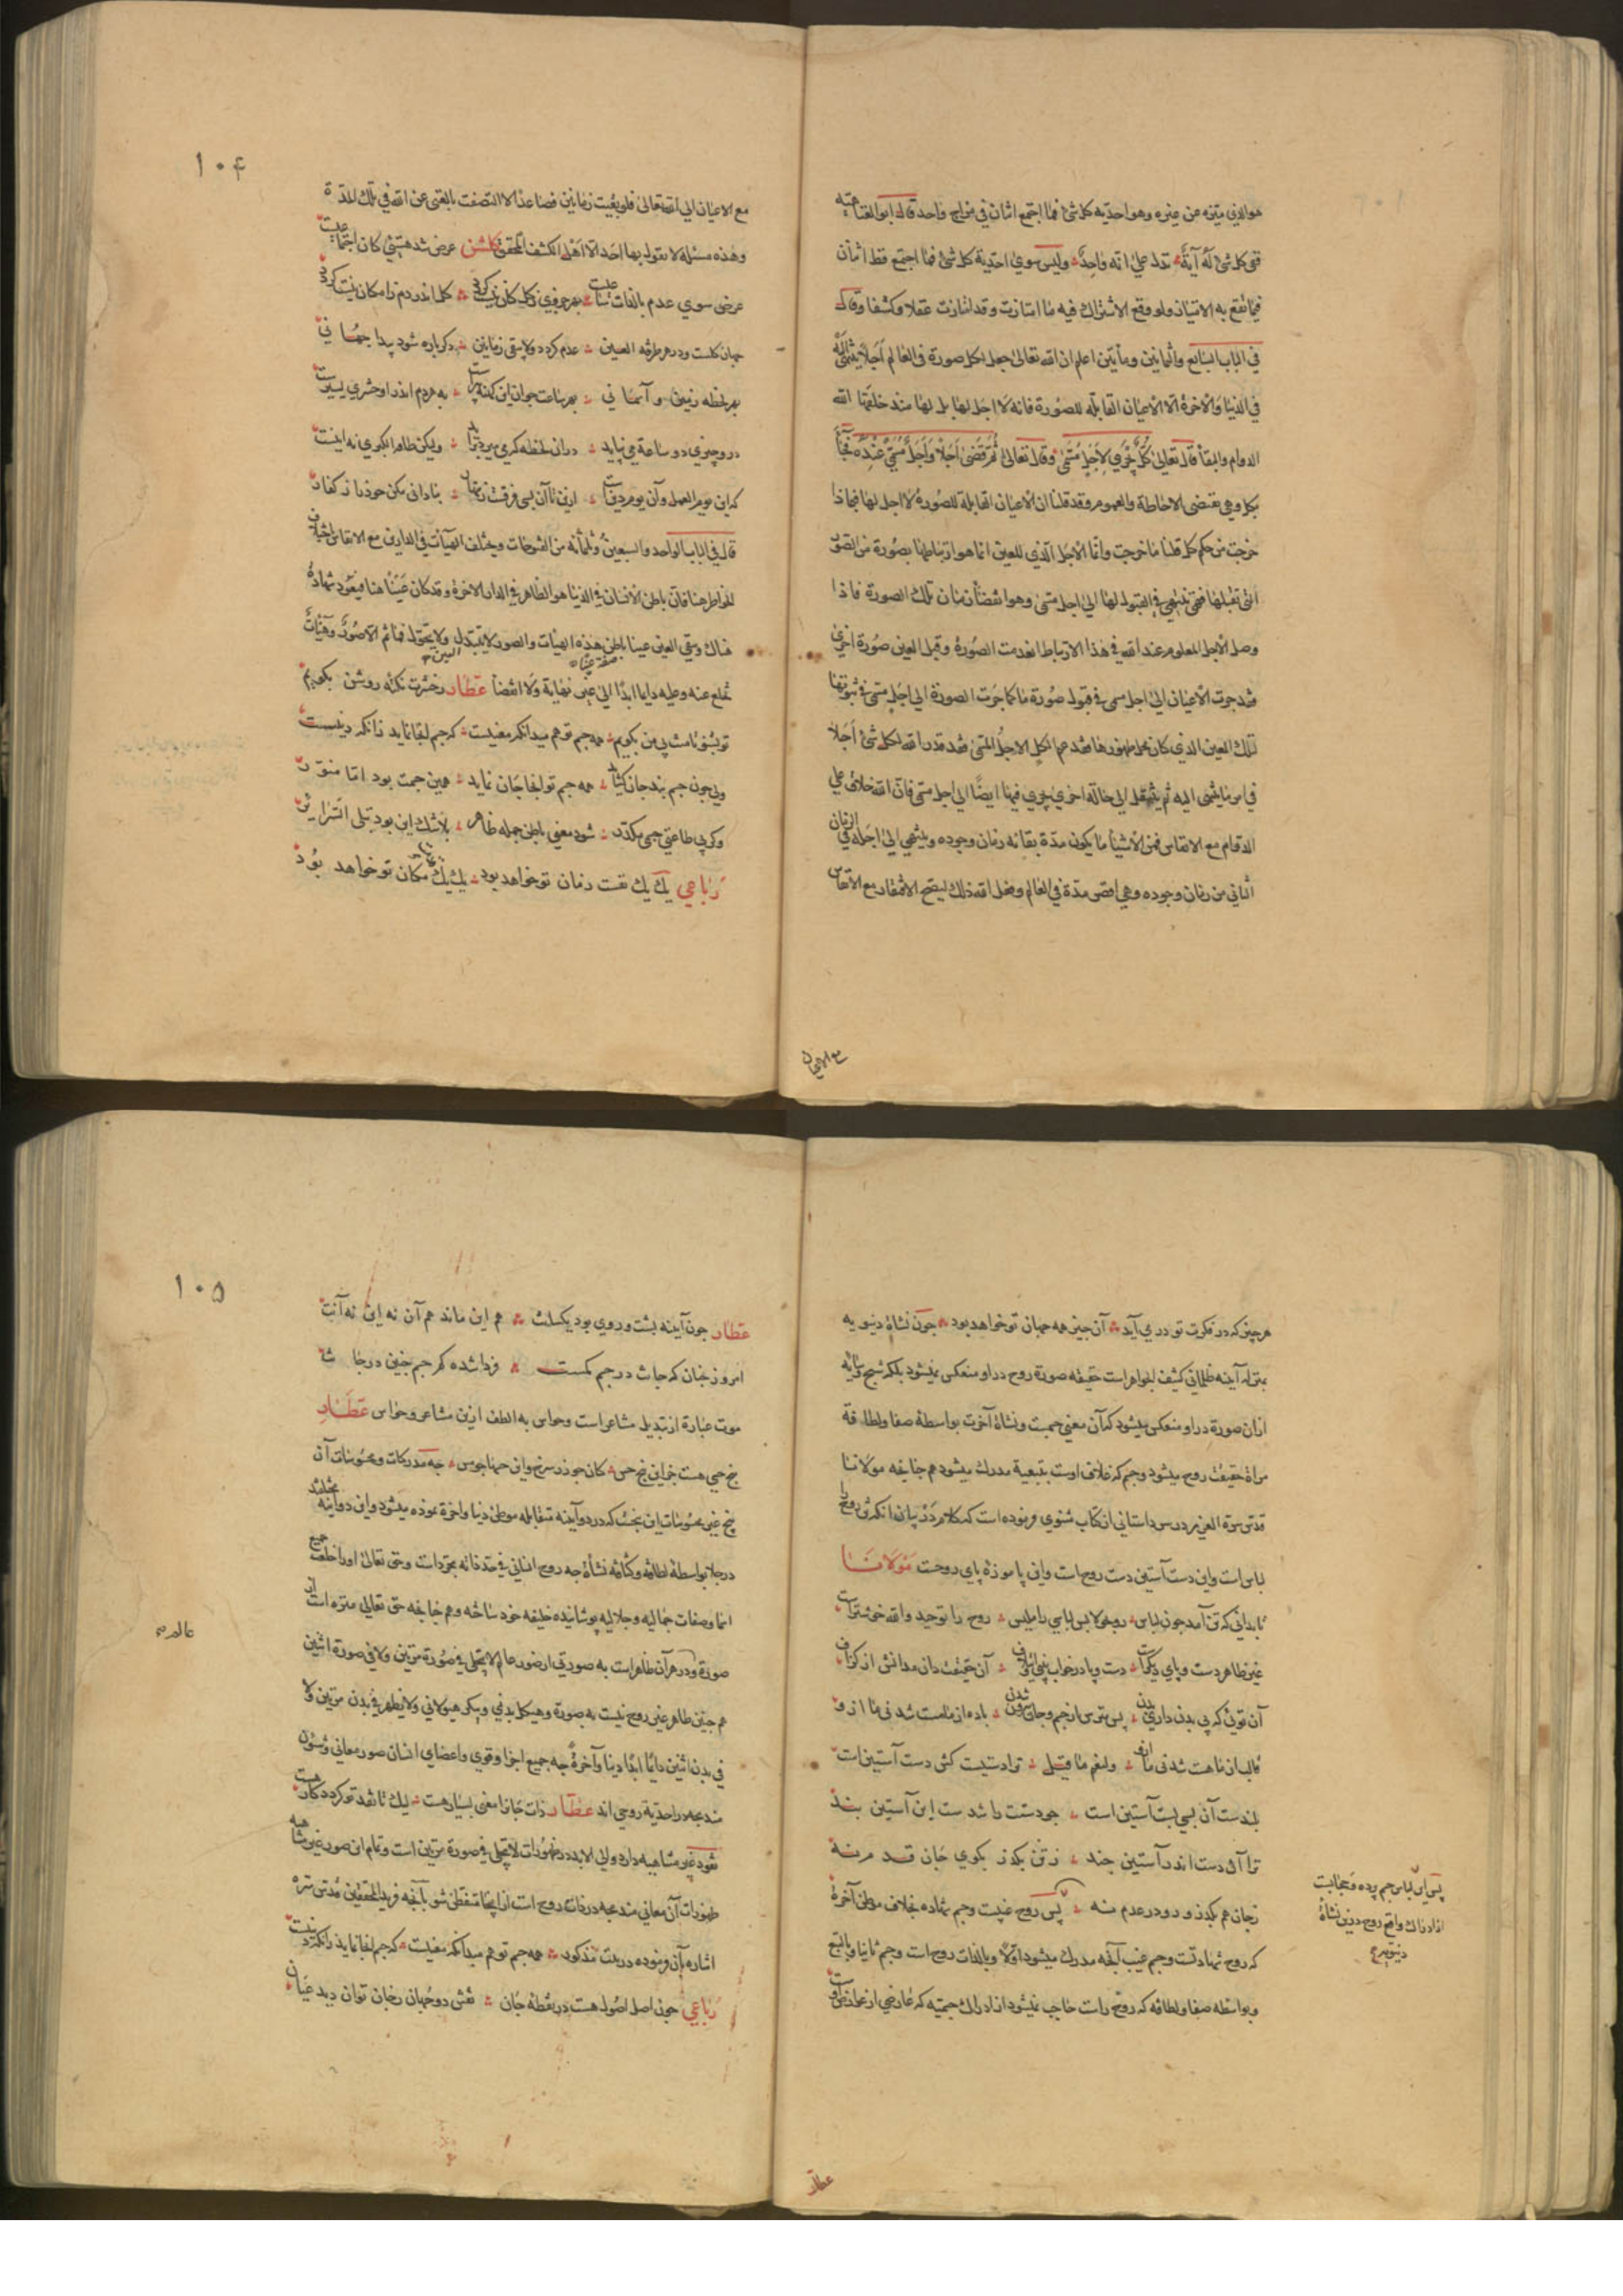 هو الذي يتميز به عن غيره وهو احدية كل شئ فما اجتمع اثنان في مزاج واحد قال ابو العتاهية
ففي كل شئ له آية تدل علي انه واحد وليس سوي احدية كل شئ فما اجتمع قط اثنان
فيما تقع به الامتياز ولو وقع الاشتراك فيه ما امتازت وقد امتازت عقلا وكشفا وقال
في الباب السابع وثمانين ومأتين اعلم ان الله تعالى جعل لكل صورة في العالم اجلا ينتهي اليه
في الدنيا والآخرة الا الاعيان القابلة للصورة فانه لا اجل لها بل لها منذ خلقها الله
الدوام والبقأ قال تعالى كل يجري لاجل مسمى وقال تعالى ثم قضى اجلا واجل مسمى عنده فجأ
بكل وهي تقتضى الاحاطة والعموم وقد قلنا ان الاعيان القابلة للصورة لا اجل لها فبماذا
خرجت من حكم كل قلنا ما خرجت وانما الاجل الذي للعين انما هو ارتباطها بصورة من الصور
التي تقبلها فهي تنتهي في القبول لها الى اجل مسمى وهو انقضأ زمان تلك الصورة فاذا
وصل الاجل المعلوم عند الله في هذا الارتباط انعدمت الصورة وقبل العين صورة اخري
فقد جرت الاعيان الى اجل مسمى في قبول صورة ما كما جرت الصورة الى اجل مسمى في ثبوتها
لتلك العين الذي كان محل ظهورها فقد عم الكل الاجل المسمى فقد قدر الله لكل شئ اجلا
في امر ما ينتهى اليه ثم ينتقل الى حالة اخري يجري فيها ايضا الى اجل مسمى فان الله خلاق علي
الدوام مع الانفاس فمن الاشيأ ما يكون مدة بقائه زمان وجوده وينتهي الى اجله في الزمان
الثاني من زمان وجوده وهي اقصى مدة في العالم وفعل الله ذلك ليصح الافتقار مع الانفاس
مع الاعيان
١٠۴
مع الاعيان الي الله تعالى فلو بقيت زمانين فصاعدا لا اتصفت بالغنى عن الله في تلك المدة
وهذه مسئلة لا يقول بها احد الا اهل الكشف المحقق گلشن عرض شد هستيي كان اجتماعيست
عرض سوي عدم بالذات ساعيست بهر جزوي ز كل كان نيست گردد كل اندر دم ز امكان نيست گردد
جهان كلست و در هر طرفة العين عدم گردد ولا يبقى زمانين دگر باره شود پيدا جهاني
بهر لحظه زمين و آسماني بهر ساعت جوان اين كهنه پيرست به هر دم اندر او حشري يسيرست
درو چيزي دو ساعة مي نپايد دران لحظه كه مي ميرد بزايد وليكن طامة الكبري نه اينست
كه اين يوم العمل وآن يوم دينست ازين تا آن بسي فرقست زنهار بناداني مكن خود را ز كفار
قال في الباب الواحد والسبعين وثلثمائه من الفتوحات ويختلف الهيآت في الدارين مع الانفاس اختلاف
الخواطر هنا فان باطن الانسان في الدنيا هو الظاهر في الدار الآخرة وقد كان غيبا هنا فيعود شهادة
هناك وتبقى العين غيبا باطن هذه الهيئات والصور لا يتبدل ولا يتحول فما ثم الا صور وهيئات
تخلع عنه وعليه دايما ابدا الى غير نهاية ولا انقضأ عطار ز حشرت نكته روشن بگويم
تو بشنو تا منت بي من بگويم همه جسم تو هم ميدانكه معنيست كه جسم اينجا نمايد زانكه دنييست
ولي چون جسم بند جان گشايد همه جسم تو آنجا جان نمايد همين جسمت بود اما منور
وگر بي طاعتي جسمي مكدر شود معني باطن جمله ظاهر بلا شك اين بود تبلى السراير
رباعي يك يك نفست زمان تو خواهد بود يك يك مكان تو خواهد بود
هر چيز كه در فكرت تو در مي آيد آن چيز همه جهان تو خواهد بود چون نشاة دنيويه
بمنزله آينه ظلماني كثيف الجواهر است حقيقه صورة روح در او منعكس نميشود بلكه شبح وسايه
ازان صورة در او منعكس ميشود كه آن معني جسمت ونشاة آخرت بواسطة صفا ولطافة
مراة حقيقت روح ميشود وجسم كه غلاف اوست بتبعية مدرك ميشود هم چنانچه مولانا
قدس سره العزيز در سر داستاني از كتاب مثنوي فرموده است كه كلام در بيان آنكه تن روح را
لباس است واين دست آستين دست روح است واين پا موزه پاي روحت مولانا
تا بداني كه تن آمد چون لباس رو بجو لابس لباسي را مليس روح را توحيد والله خوشترست
غير ظاهر دست و پاي ديگرست دست و پا در خواب بيني وائتلاف آن حقيقت دان مدانش از گزاف
آن توئي كه بي بدن داري بدن پس مترس از جسم وجان بيرون شدن باده از ما مست شد ني ما از و
قالب از ما هست شد ني ما ازو ولنعم ما قيل ترا دستيست كش دست آستين است
بلندست آن بسي پست آستين است چو دستت باشد ست اين آستين بند
ترا آن دست اندر آستين چند ز تن بگذر بكوي جان قدم نه
ز جان هم بگذر و رو در عدم نه پس روح غيبست وجسم شهاده بخلاف موطن آخرة
كه روح شهادتست وجسم غيب آنچه مدرك ميشود اولا وبالذات روح است وجسم ثانيا وبالتبع
وبواسطه صفا ولطافه كه روح راست حاجب نميشود از ادراك جسميه كه عارضي از عوارض اوست
پس اين لباس جسم پرده وحجابست
از ادراك واقع روح درين نشاة
دنيويه
عطار
١٠۵
عطار چون آينه پشت و روي بود يكسانت هم اين ماند هم آن نه اين نه آنت
امروز چنان كه جانت در جسم گمست فردا شده گم جسم چنين در جانت
موت عبارة از تبديل مشاعر است وحواس به الطف ازين مشاعر وحواس عطار
پنج حسي هست جز اين پنج حس كان چو زر سرخ واين حسها چو مس چه مدركات ومحسوسات آن
پنج غير محسوسات اين پنجست كه در دو آينه متقابله موطن دنيا واخرة نموده ميشود واين دو آينه مختلفند
در جلا بواسطة لطافه وكثافه نشأة چه روح انساني في حد ذاته مجرد است وحق تعالى او را خلعت جميع
اسما وصفات جماليه وجلاليه پوشانيده خليفه خود ساخته وهم چنانچه حق تعالى منزه است از
صورة ودر هر آن ظاهر است به صورتي از صور عالم لا يتجلى في صورة مرتين ولا في صورة اثنين
هم چنين ظاهر غير روح نيست به صورة وهيكل بدني وپيكر هيولاني ولا يظهر في بدن مرتين ولا
في بدن اثنين دائما ابدا دنيا وآخرة چه جميع اجزا وقوي واعضاي انسان صور معاني وشئون
مندمجه در احدية روحي اند عطار ذات جانرا معني بسيار هست ليك تا نقد تو گردد كار هست
شهود غير متناهيه دارد ولى الابد در ظهورات لا يتجلى في صورة مرتين است وتمام اين صور غير متناهيه
ظهورات آن معاني مندمجه در ذات روح است از اينجا متفطن شو بآنچه فريد المحققين قدس سره
اشاره بآن فرموده در بيت مذكور همه جسم تو هم ميدانكه معنيست كه جسم اينجا نمايد زانكه دنييست
رباعي چون اصل اصول هست در نقطه جان نقش دو جهان ز جان توان ديد عيان
عالم صح